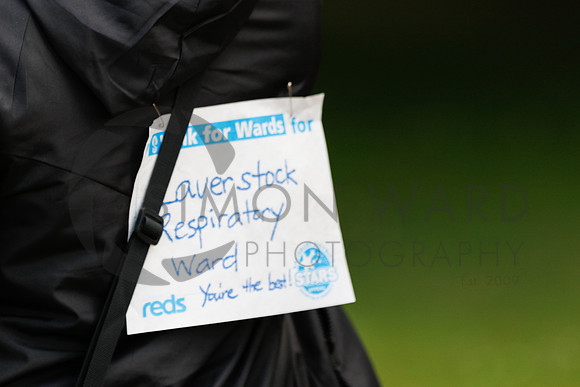 Walk for Wards for
Laverstock
Respiratory
Ward
You're the best!
STARS
reds
SIMON WARD
PHOTOGRAPHY